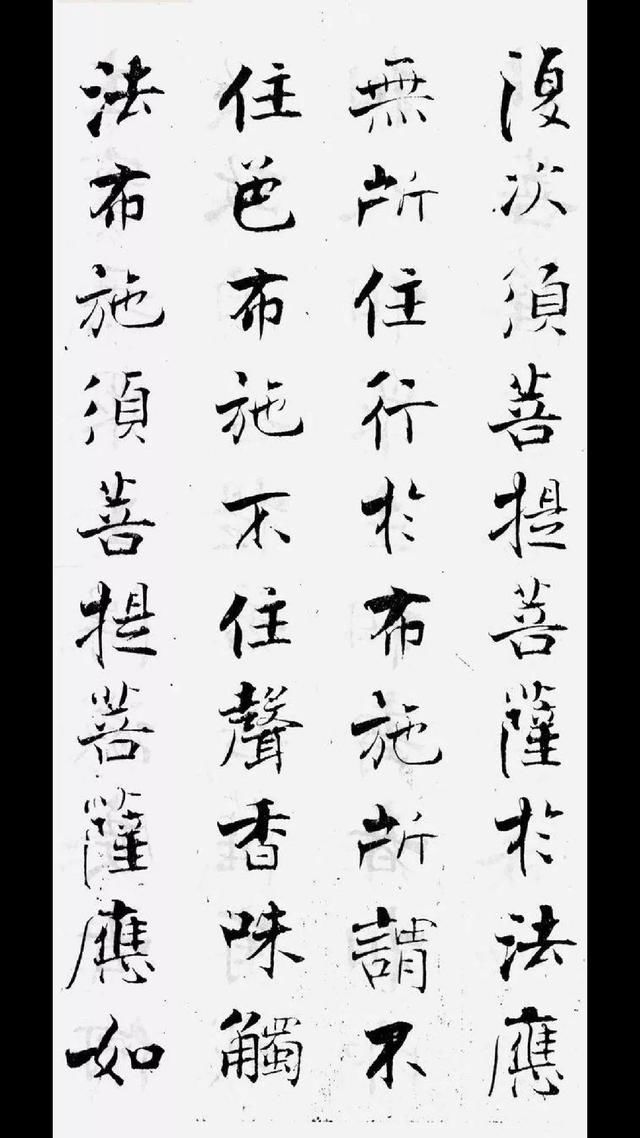 復次須菩提菩薩於法應
無所住行於布施所謂不
住色布施不住聲香味觸
法布施須菩提菩薩應如